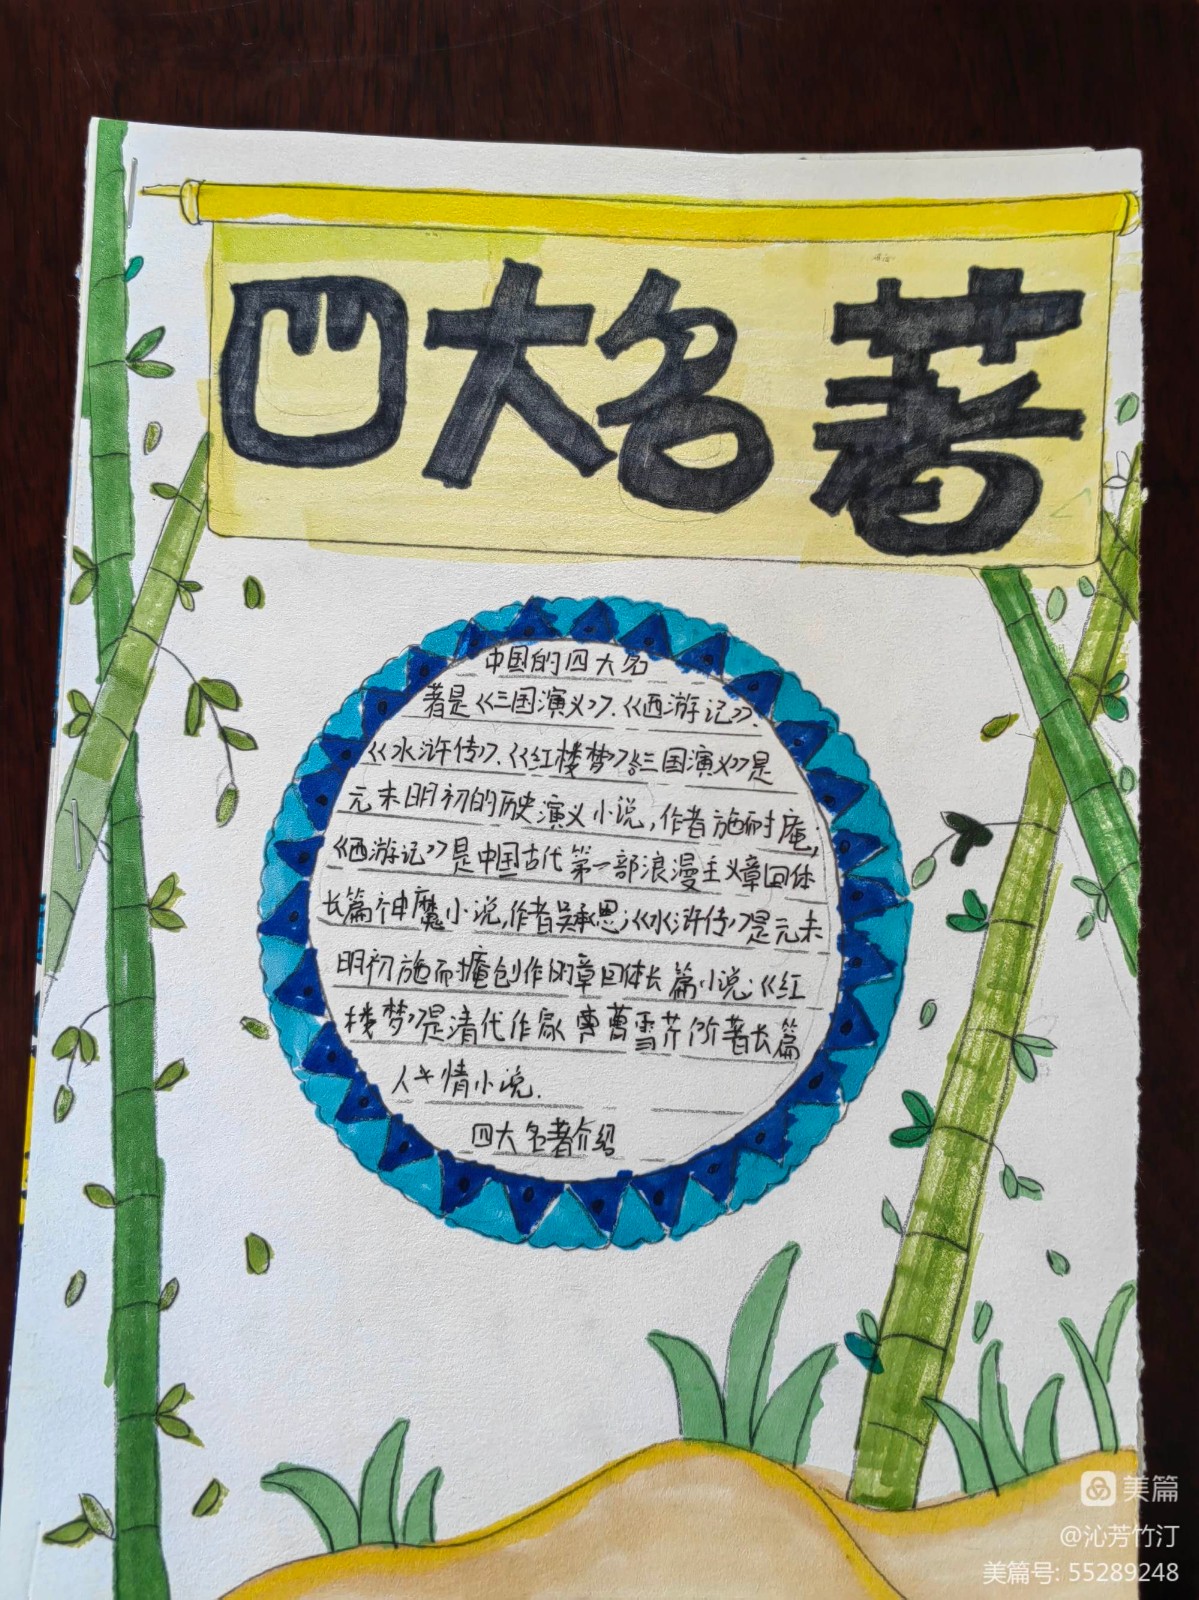 四大名著
中国的四大名
著是《三国演义》、《西游记》、
《水浒传》、《红楼梦》《三国演义》是
元末明初的历史演义小说,作者施耐庵;
《西游记》是中国古代第一部浪漫主义章回体
长篇神魔小说,作者吴承恩;《水浒传》是元末
明初施耐庵创作的章回体长篇小说;《红
楼梦》是清代作家曹雪芹所著长篇
人情小说.
四大名著介绍
美篇
@沁芳竹汀
美篇号: 55289248